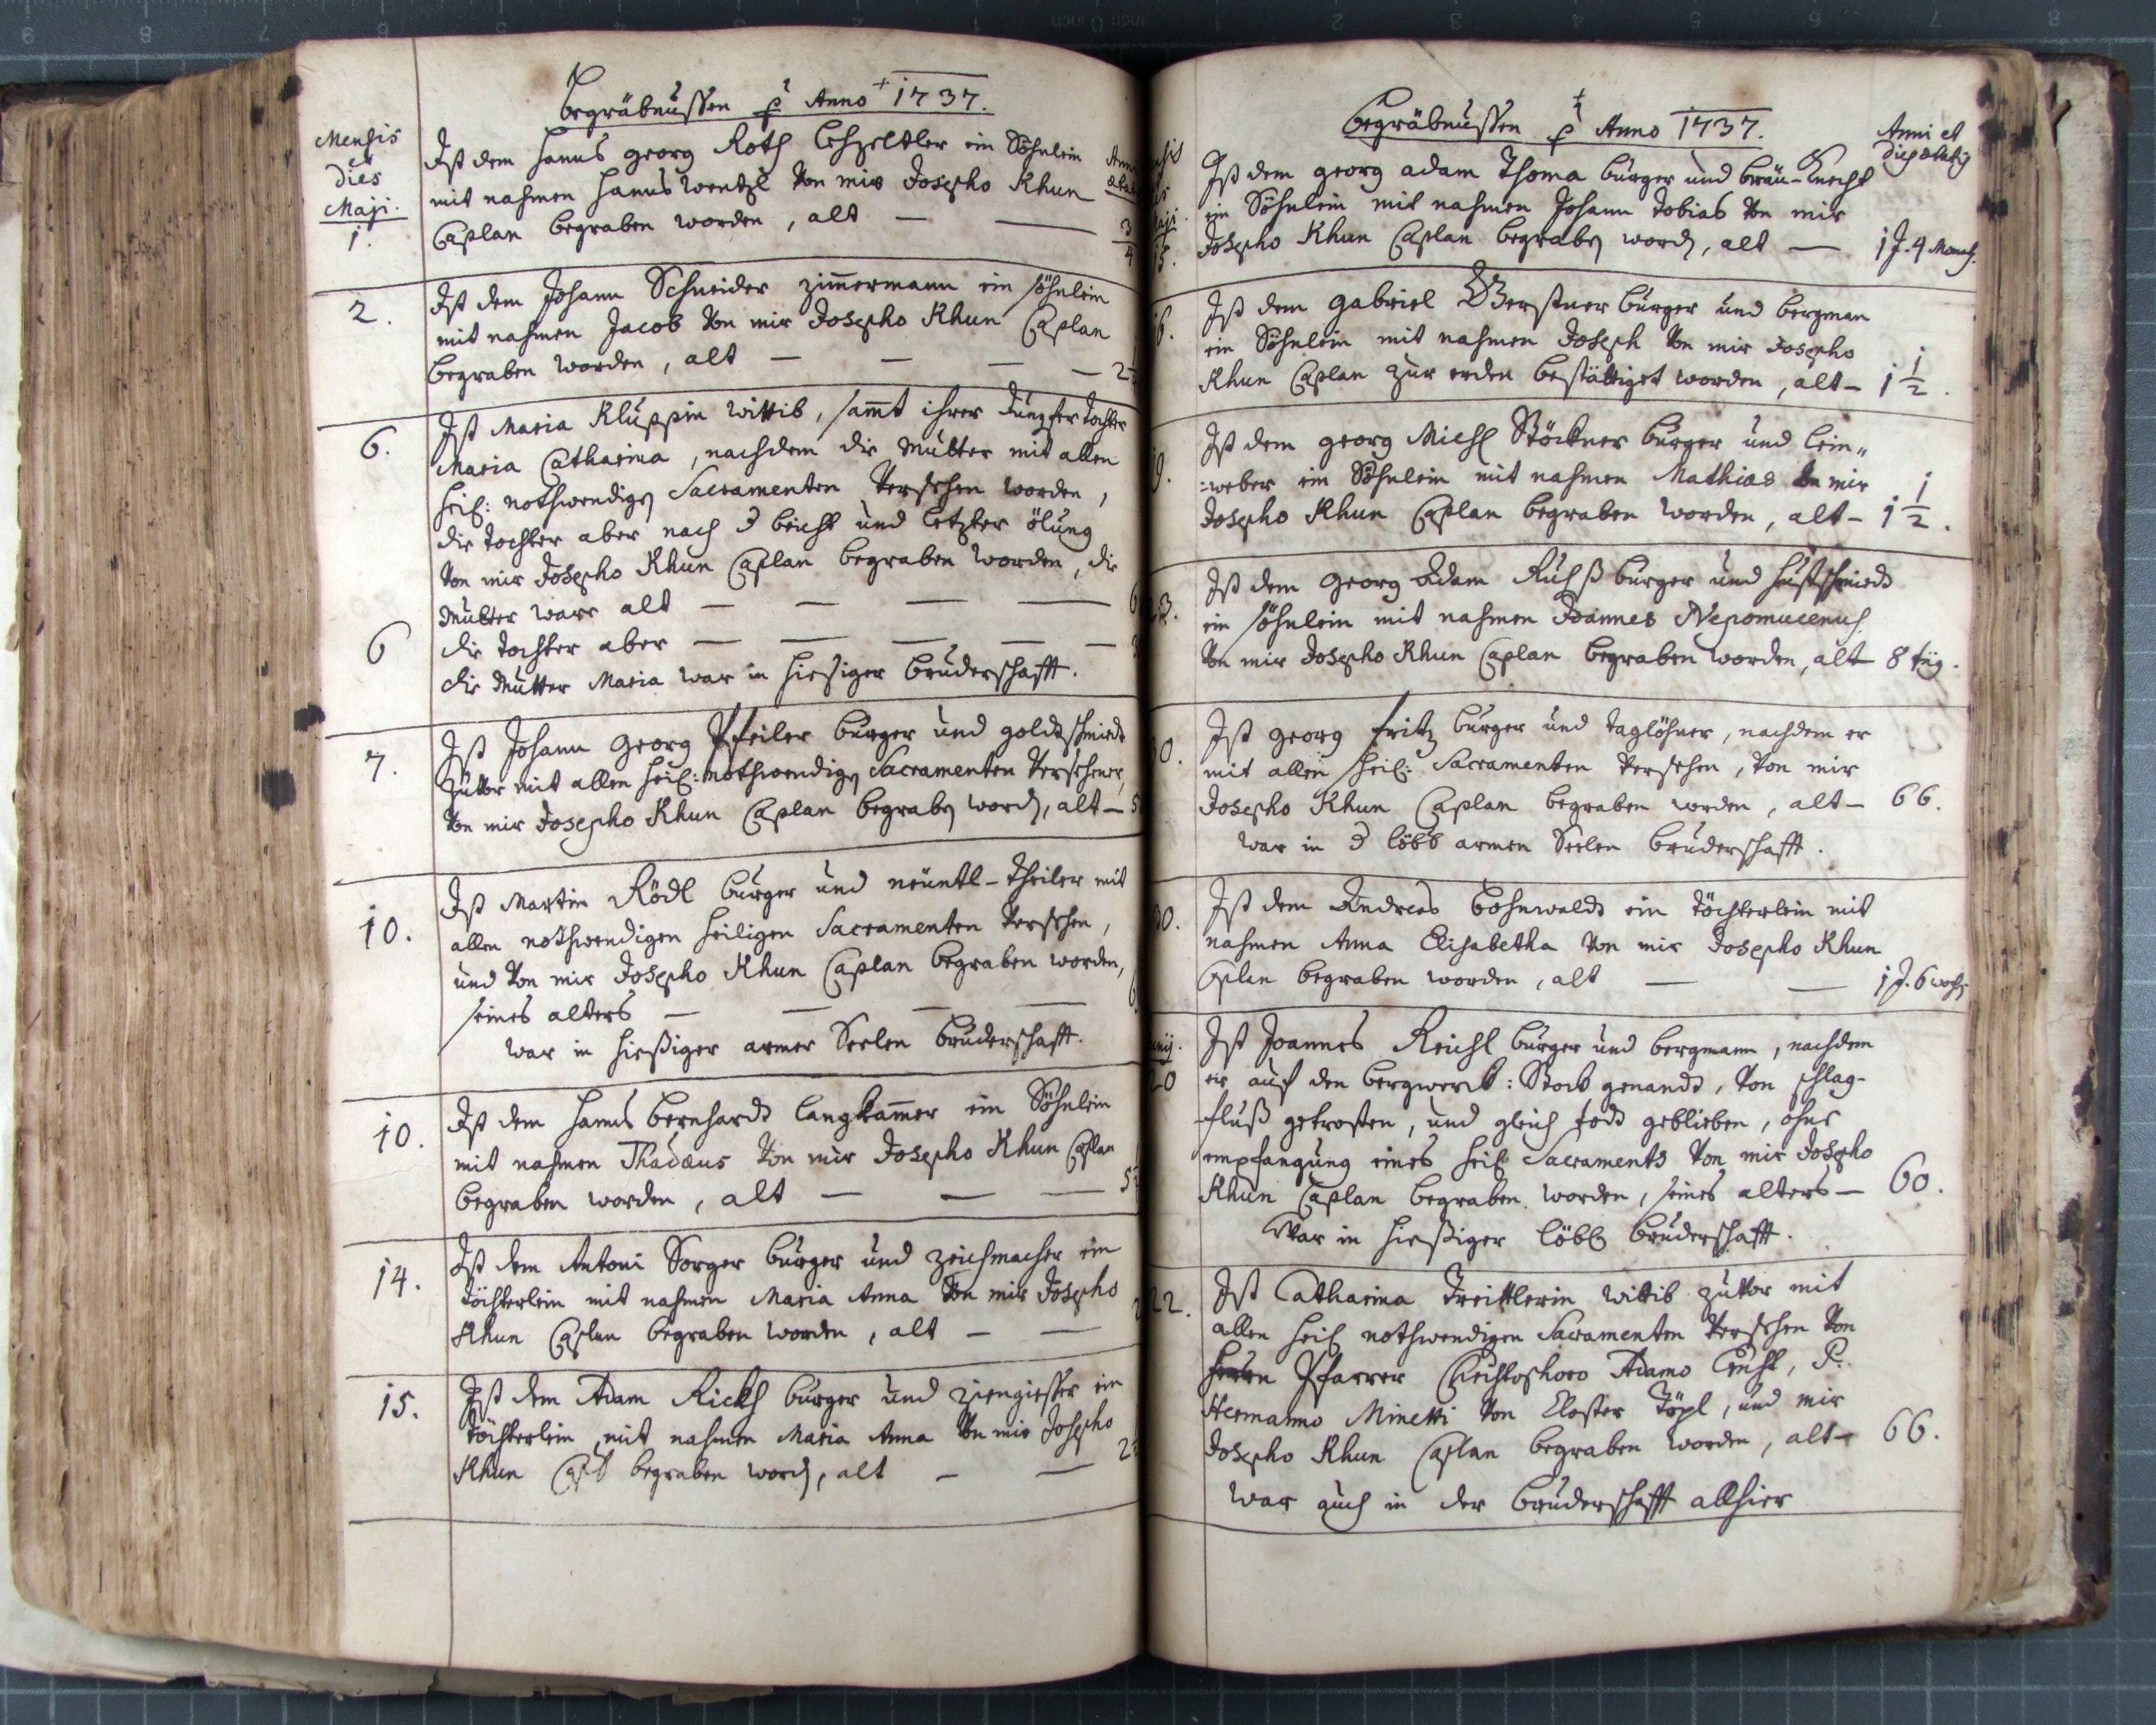 Begräbnussen p Anno 1737.
Mensis
et
dies
Maji.
1.
Ist dem Hanns Georg Roth Lehzeltler ein Söhnlein
mit nahmen Hanns Wentzl von mir Josepho Khun
Caplan begraben worden, alt — — 3/4
2.
Ist dem Johann Schneider Zim̄ermann ein söhnlein
mit nahmen Jacob von mir Josepho Khun Caplan
begraben worden, alt — — — — 2
6.
Ist Maria Kluppin wittib, sam̄t ihrer Jungfer Tochter
Maria Catharina, nachdem die Mutter mit allen
heil: nothwendigen Sacramenten versehen worden,
die Tochter aber nach d beicht und letzter ölung
von mir Josepho Khun Caplan begraben worden, die
Mutter ware alt — — — —
6
die Tochter aber — — — — —
die Mutter Maria war in hiesiger Bruderschafft.
7.
Ist Johann Georg Pfeiler burger und goldtschmiedt
zuvor mit allen heil: nothwendigen Sacramenten versehener,
von mir Josepho Khun Caplan begraben worden, alt — 5
10.
Ist Martin Rödl burger und neuntl-Theiler mit
allen nothwendigen heiligen Sacramenten versehen,
und von mir Josepho Khun Caplan begraben worden,
seines alters — — — —
war in hießiger armer Seelen Bruderschafft.
10.
Ist dem Hanns Bernhardt Langkam̄er ein Söhnlein
mit nahmen Thadæus von mir Josepho Khun Caplan
begraben worden, alt — — — 5
14.
Ist dem Antoni Sorger burger und Zeichmacher ein
Töchterlein mit nahmen Maria Anna von mir Josepho
Khun Caplan begraben worden, alt — —
15.
Ist dem Adam burger und Ziengiesser ein
Töchterlein mit nahmen Maria Anna von mir Josepho
Khun Capl begraben worden, alt — — 2
Begräbnussen p Anno 1737.
Anni et
dies ætatis
Ist dem Georg Adam Thoma burger und Bräu-Knecht
ein Söhnlein mit nahmen Johann Tobias von mir
Josepho Khun Caplan begraben worden, alt — 1 J. 4 Monath.
5.
Ist dem Gabriel Gerstner burger und bergman
ein Söhnlein mit nahmen Joseph von mir Josepho
Khun Caplan zur erden bestättiget worden, alt — 1 1/2.
6.
Ist dem Georg Michl Stöckner burger und lein„
=weber ein Söhnlein mit nahmen Mathias von mir
Josepho Khun Caplan begraben worden, alt — 1 1/2.
9.
Ist dem Georg Adam burger und Hufschmiedt
ein söhnlein mit nahmen Joannes Nepomucenus
von mir Josepho Khun Caplan begraben worden, alt 8 täg.
23.
Ist Georg Fritz burger und Taglöhner, nachdem er
mit allen heil: Sacramenten versehen, von mir
Josepho Khun Caplan begraben worden, alt — 66.
war in d löbl armen Seelen Bruderschafft.
30.
Ist dem Andreas Bohnwaldt ein Töchterlein mit
nahmen Anna Elisabetha von mir Josepho Khun
Caplan begraben worden, alt — — 1 J. 6 woch.
20
Ist Joannes Reichl burger und bergmann, nachdem
er auf den bergwerck: Stock genandt, von schlag-
-fluß getroffen, und gleich todt geblieben, ohne
empfangung eines heil Sacraments von mir Josepho
Khun Caplan begraben worden, seines alters — 60.
War in hießiger löbl Bruderschafft.
22.
Ist Catharina Treittlerin wittib zuvor mit
allen heil nothwendigen Sacramenten versehen von
Herrn Pfarrer Christophoro Adamo P.
Hermanno Minetti von Closter Töpl, und mir
Josepho Khun Caplan begraben worden, alt — 66.
war auch in der Bruderschafft allhier